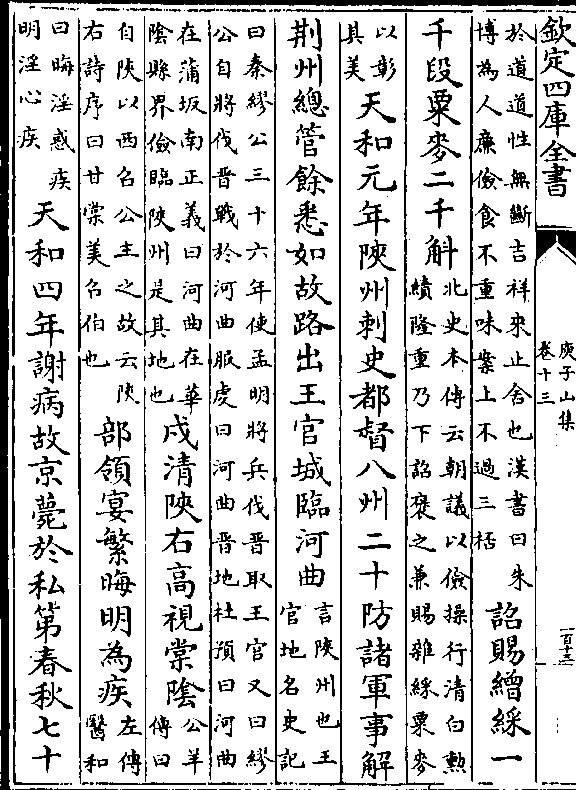 欽定四庫全書
庾子山集
卷十三
一百十三
於道道性無斷吉祥來止舍也漢書曰朱
博為人廉儉食不重味案上不過三桮
詔賜繒綵一
千段粟麥二千斛
北史本傳云朝議以儉操行清白勲
績隆重乃下詔褒之兼賜雜綵粟麥
以彰
其美
天和元年陜州刺史都督八州二十防諸軍事解
荆州總管餘悉如故路出王官城臨河曲
言陜州也王
官地名史記
曰秦繆公三十六年使孟明將兵伐晉取王官又曰繆
公自將伐晉戰於河曲服虔曰河曲晉地杜預曰河曲
在蒲坂南正義曰河曲在華
陰縣界儉臨陜州是其地也
戍清陜右高視棠陰
公羊
傳曰
自陜以西召公主之故云陜
右詩序曰甘棠美召伯也
部領宴繁晦明為疾
左傳
醫和
曰晦淫惑疾
明淫心疾
天和四年謝病故京薨於私第春秋七十